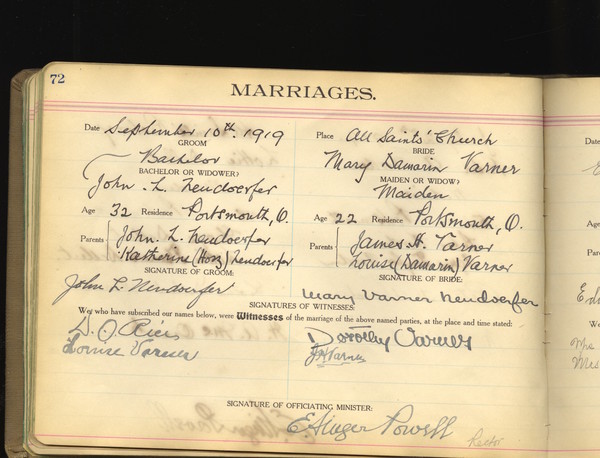 72
MARRIAGES.
Date September 10th. 1919
GROOM
Bachelor
BACHELOR OR WIDOWER?
John. L. Neudoerfer
Age 32 Residence Portsmouth, O.
Parents John. L. Neudoerfer
Katherine (Horz) Neudoerfer
SIGNATURE OF GROOM:
John L Neudoerfer
Place All Saints' Church
BRIDE
Mary Damarin Varner
MAIDEN OR WIDOW?
Maiden
Age 22 Residence Portsmouth, O.
Parents James H. Varner
Louise (Damarin) Varner
SIGNATURE OF BRIDE:
Mary Varner Neudoerfer
SIGNATURES OF WITNESSES
We, who have subscribed our names below, were Witnesses of the marriage of the above named parties, at the place and time stated:
Louise Varner
Dorothy Varner
Varner
SIGNATURE OF OFFICIATING MINISTER:
Powell
Rector
Date
Age
Parents
We
Mrs